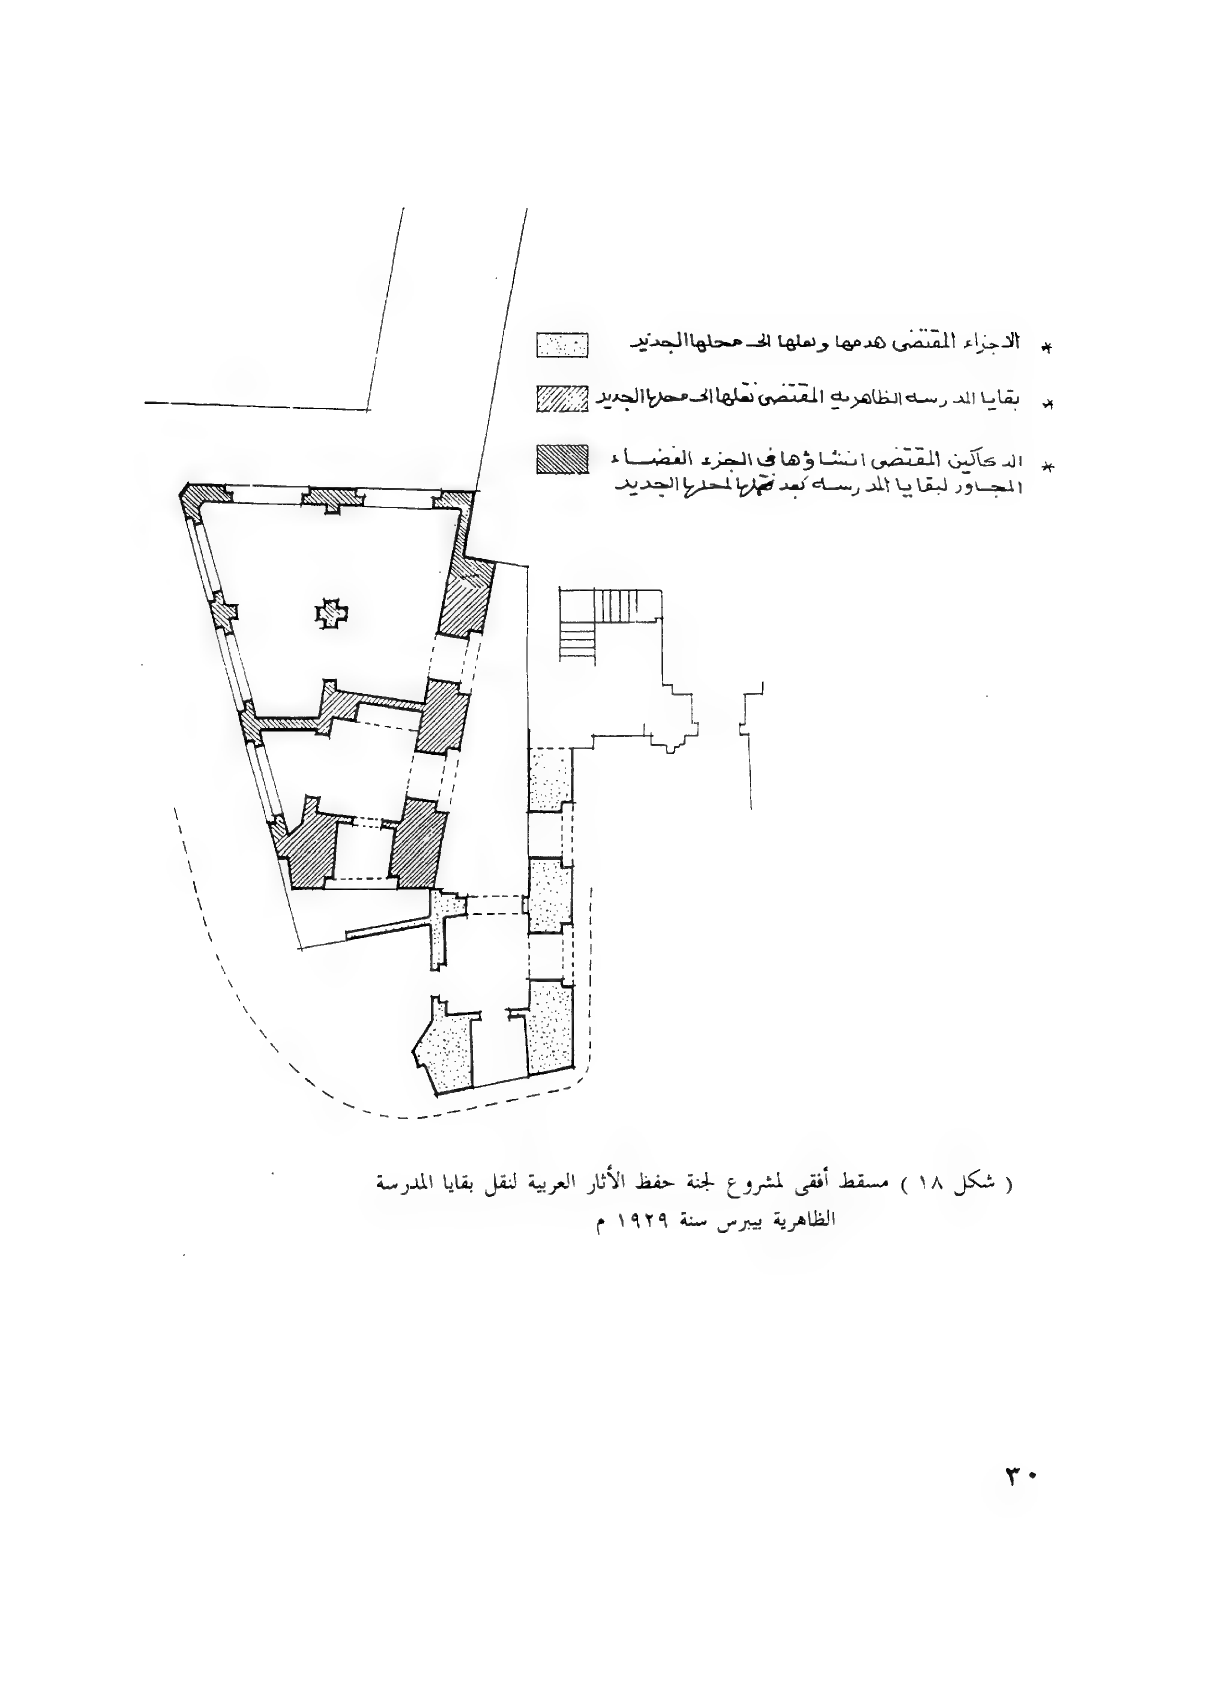 * الاجزاء المقتضى هدمها ونقلها الى محلها الجديد
* بقايا المدرسه الظاهريه المقتضى نقلها الى محلها الجديد
* الدكاكين المقتضى انشاؤها فى الجزء الفضاء
المجاور لبقايا المدرسه بعد نقلها لمحلها الجديد
( شكل ١٨ ) مسقط أفقى لمشروع لجنة حفظ الأثار العربية لنقل بقايا المدرسة
الظاهرية بيبرس سنة ١٩٢٩ م
٣٠